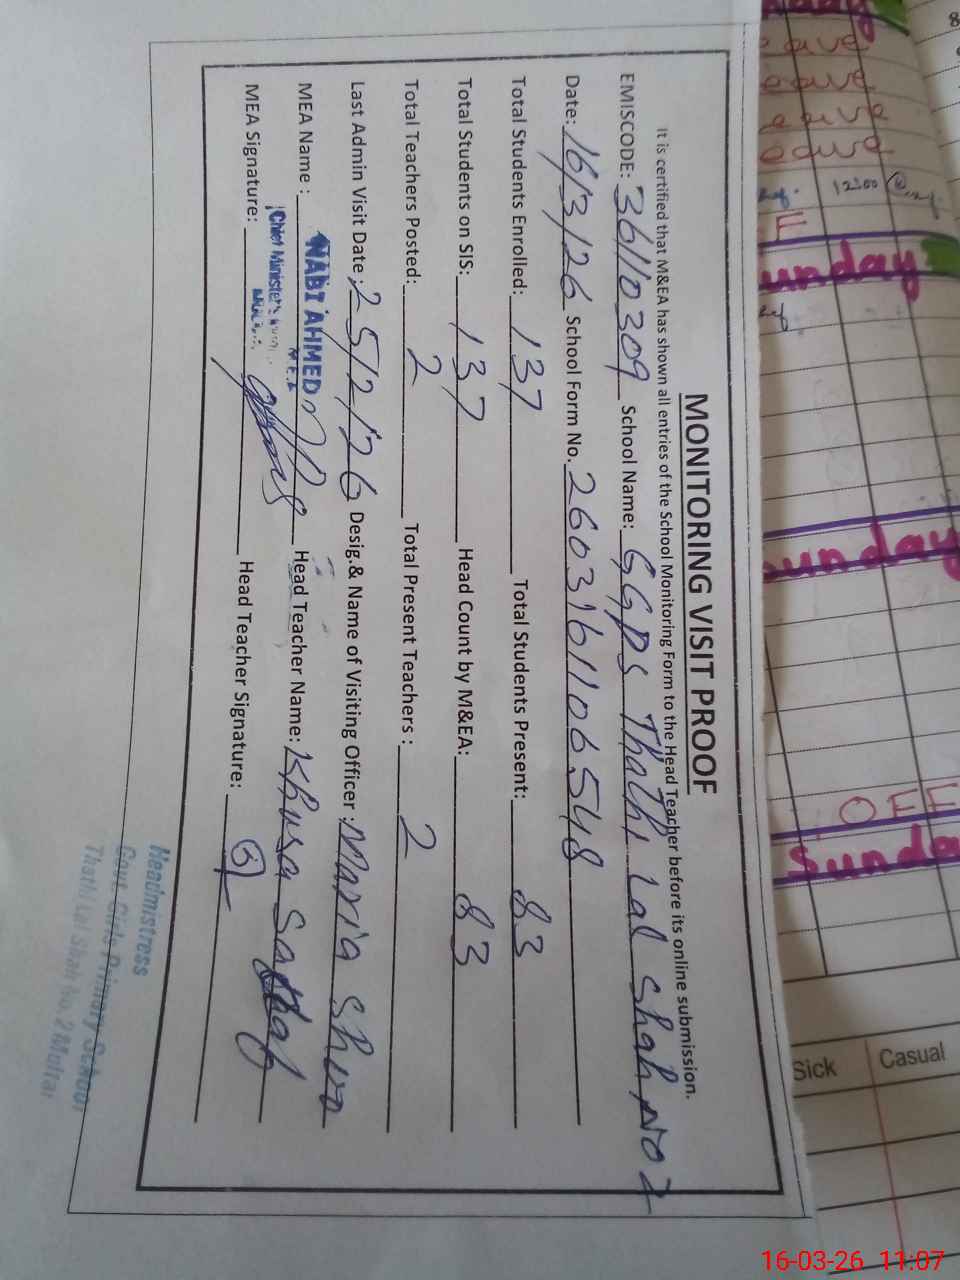 MONITORING VISIT PROOF
It is certified that M&EA has shown all entries of the School Monitoring Form to the Head Teacher before its online submission.
EMISCODE: 36110309 School Name: GGPS Thathi Lal Shah No 2
Date: 16/3/26 School Form No. 2603161106548
Total Students Enrolled: 137 Total Students Present: 83
Total Students on SIS: 137 Head Count by M&EA: 83
Total Teachers Posted: 2 Total Present Teachers : 2
Last Admin Visit Date : 25/2/26 Desig.& Name of Visiting Officer : Maria
MEA Name : NABI AHMED Head Teacher Name:
M.E.A
MEA Signature: Head Teacher Signature:
Chief Minister's
Headmistress
Govt. Girls Primary School
Thathi Lal Shah No. 2 Multan
eave
eave
eave
eave
12:00
unday
unday
OFF
Sunday
Sick Casual
16-03-26 11:07